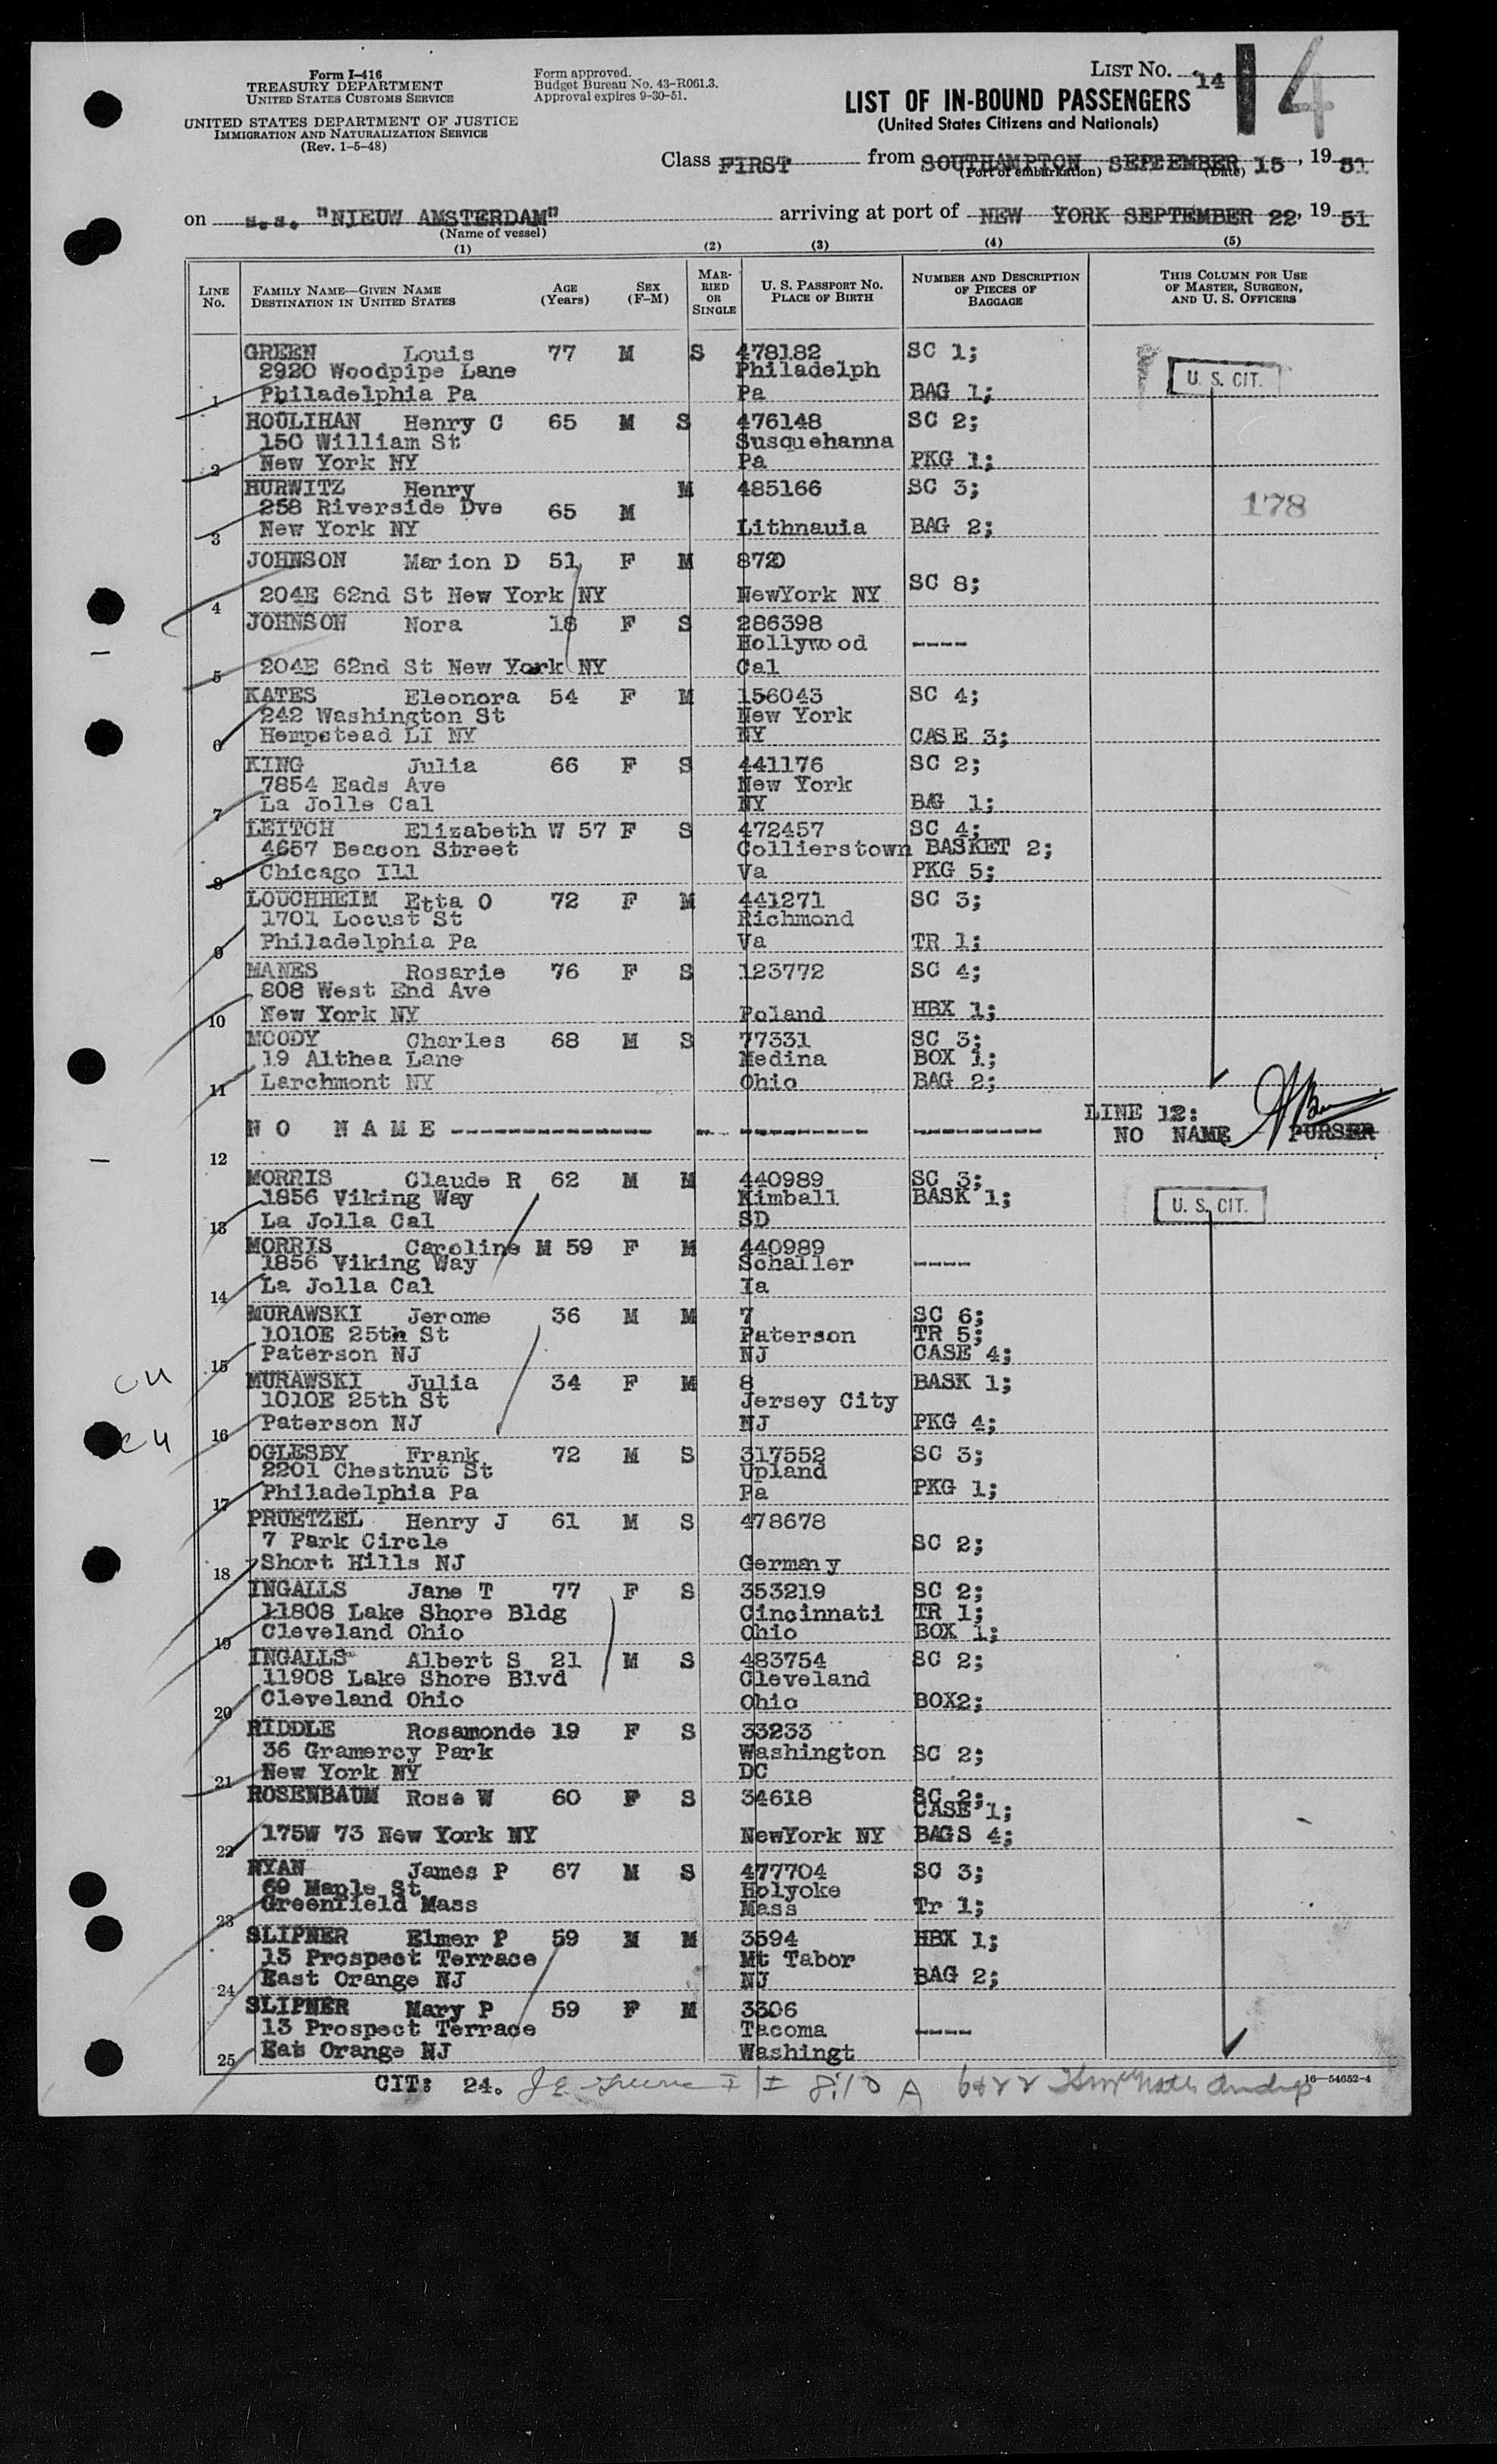 Form I-416
TREASURY DEPARTMENT
UNITED STATES CUSTOMS SERVICE
UNITED STATES DEPARTMENT OF JUSTICE
IMMIGRATION AND NATURALIZATION SERVICE
(Rev. 1-5-48)
Form approved.
Budget Bureau No. 43-R061.3.
Approval expires 9-30-51.
LIST NO. 14
14
LIST OF IN-BOUND PASSENGERS
(United States Citizens and Nationals)
Class FIRST from SOUTHAMPTON SEPTEMBER 15, 1951
(Port of embarkation) (Date)
on s.s. "NIEUW AMSTERDAM" arriving at port of NEW YORK SEPTEMBER 22, 1951
(Name of vessel)
(1) (2) (3) (4) (5)
LINE No. FAMILY NAME—GIVEN NAME DESTINATION IN UNITED STATES AGE (Years) SEX (F-M) MARRIED OR SINGLE U. S. PASSPORT NO. PLACE OF BIRTH NUMBER AND DESCRIPTION OF PIECES OF BAGGAGE THIS COLUMN FOR USE OF MASTER, SURGEON, AND U. S. OFFICERS
GREEN Louis 77 M S 478182 SC 1;
2920 Woodpipe Lane Philadelph U. S. CIT.
1 Philadelphia Pa Pa BAG 1;
HOULIHAN Henry C 65 M S 476148 SC 2;
150 William St Susquehanna
2 New York NY Pa PKG 1;
HURWITZ Henry M 485166 SC 3;
258 Riverside Dve 65 M 178
3 New York NY Lithnauia BAG 2;
JOHNSON Marion D 51 F M 8720
SC 8;
4 204E 62nd St New York NY NewYork NY
JOHNSON Nora 18 F S 286398
Hollywood ----
5 204E 62nd St New York NY Cal
KATES Eleonora 54 F M 156043 SC 4;
242 Washington St New York
6 Hempstead LI NY NY CASE 3;
KING Julia 66 F S 441176 SC 2;
7854 Eads Ave New York
7 La Jolle Cal NY BAG 1;
LEITCH Elizabeth W 57 F S 472457 SC 4;
4657 Beacon Street Collierstown BASKET 2;
8 Chicago Ill Va PKG 5;
LOUCHHEIM Etta O 72 F M 441271 SC 3;
1701 Locust St Richmond
9 Philadelphia Pa Va TR 1;
MANES Rosarie 76 F S 123772 SC 4;
808 West End Ave
10 New York NY Poland HBX 1;
MOODY Charles 68 M S 77331 SC 3;
19 Althea Lane Medina BOX 1;
11 Larchmont NY Ohio BAG 2;
LINE 12:
NO NAME ---- NO NAME PURSER
12
MORRIS Claude R 62 M M 440989 SC 3;
1856 Viking Way Kimball BASK 1; U. S. CIT.
13 La Jolla Cal SD
MORRIS Caroline M 59 F M 440989
1856 Viking Way Schaller ----
14 La Jolla Cal Ia
MURAWSKI Jerome 36 M M 7 SC 6;
1010E 25th St Paterson TR 5;
15 Paterson NJ NJ CASE 4;
MURAWSKI Julia 34 F M 8 BASK 1;
1010E 25th St Jersey City
16 Paterson NJ NJ PKG 4;
OGLESBY Frank 72 M S 317552 SC 3;
2201 Chestnut St Upland
17 Philadelphia Pa Pa PKG 1;
PRUETZEL Henry J 61 M S 478678
7 Park Circle SC 2;
18 Short Hills NJ Germany
INGALLS Jane T 77 F S 353219 SC 2;
11808 Lake Shore Bldg Cincinnati TR 1;
19 Cleveland Ohio Ohio BOX 1;
INGALLS Albert S 21 M S 483754 SC 2;
11908 Lake Shore Blvd Cleveland
20 Cleveland Ohio Ohio BOX2;
RIDDLE Rosamonde 19 F S 33233
36 Gramercy Park Washington SC 2;
21 New York NY DC
ROSENBAUM Rose W 60 F S 34618 SC 2;
CASE 1;
22 175W 73 New York NY NewYork NY BAGS 4;
RYAN James P 67 M S 477704 SC 3;
69 Maple St Holyoke
23 Greenfield Mass Mass Tr 1;
SLIPNER Elmer P 59 M M 3594 HBX 1;
13 Prospect Terrace Mt Tabor
24 East Orange NJ NJ BAG 2;
SLIPNER Mary P 59 F M 3306
13 Prospect Terrace Tacoma ----
25 Eat Orange NJ Washingt
CIT: 24.
16—54652-4